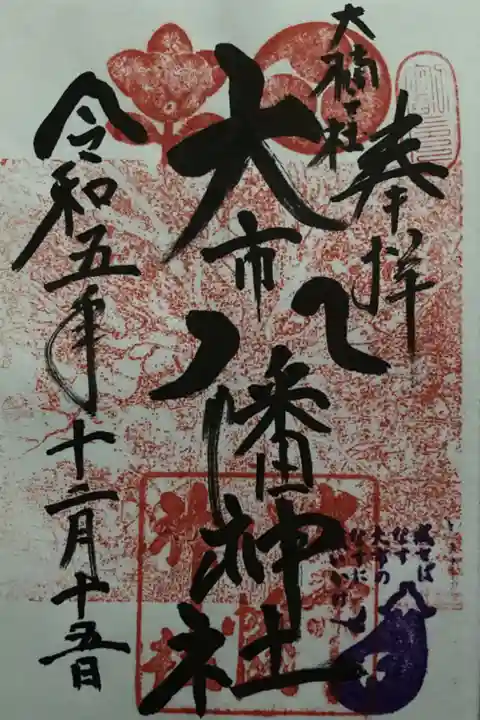 奉拝
大楠ヶ社
大市八幡神社
令和五年十二月十五日
成せば
なす
大市の
なすに